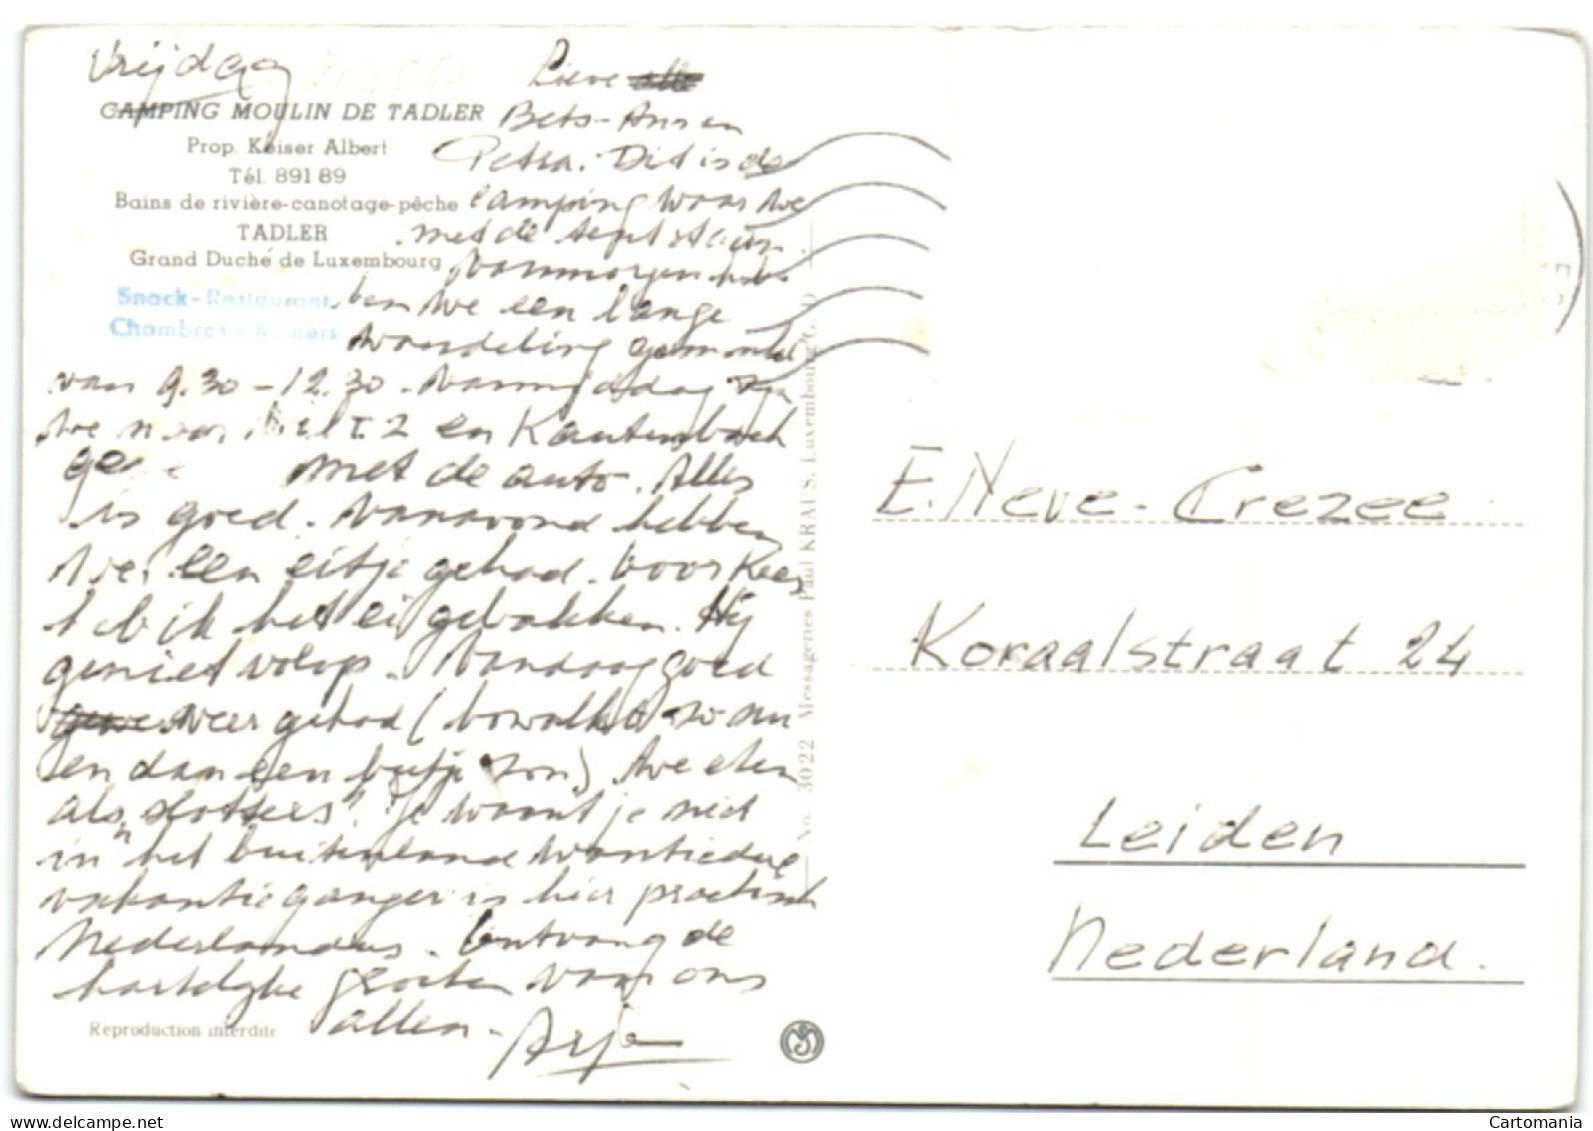 Vrijdag
CAMPING MOULIN DE TADLER
Prop. Keiser Albert
Tél. 891 89
Bains de rivière-canotage-pêche
TADLER
Grand Duché de Luxembourg
Snack-Restaurant
Chambres - Kamers
Lieve
Bets-Ans en
Petra. Dit is de
camping waar we
met de tent staan.
Vanmorgen heb-
ben we een lange
wandeling gemaakt
van 9.30 - 12.30. Vanmiddag zijn
we naar Wiltz en Kautenbach
met de auto. Alles
is goed. Vanavond hebben
we een eitje gehad. Voor Kees
heb ik het ei gebakken. Hij
geniet volop. Vandaag goed
weer gehad (bewolkt zo nu
en dan een beetje zon). We eten
als slotters! Je waant je niet
in 'n het buitenland want iedere
vakantieganger is hier praktisch
Nederlander. Ontvang de
hartelijke groeten van ons
allen. Arja
Reproduction interdite
No. 3022 Messageries Paul KRAUS, Luxembourg
E. Neve-Crezee
Koraalstraat 24
Leiden
Nederland.
Cartomania